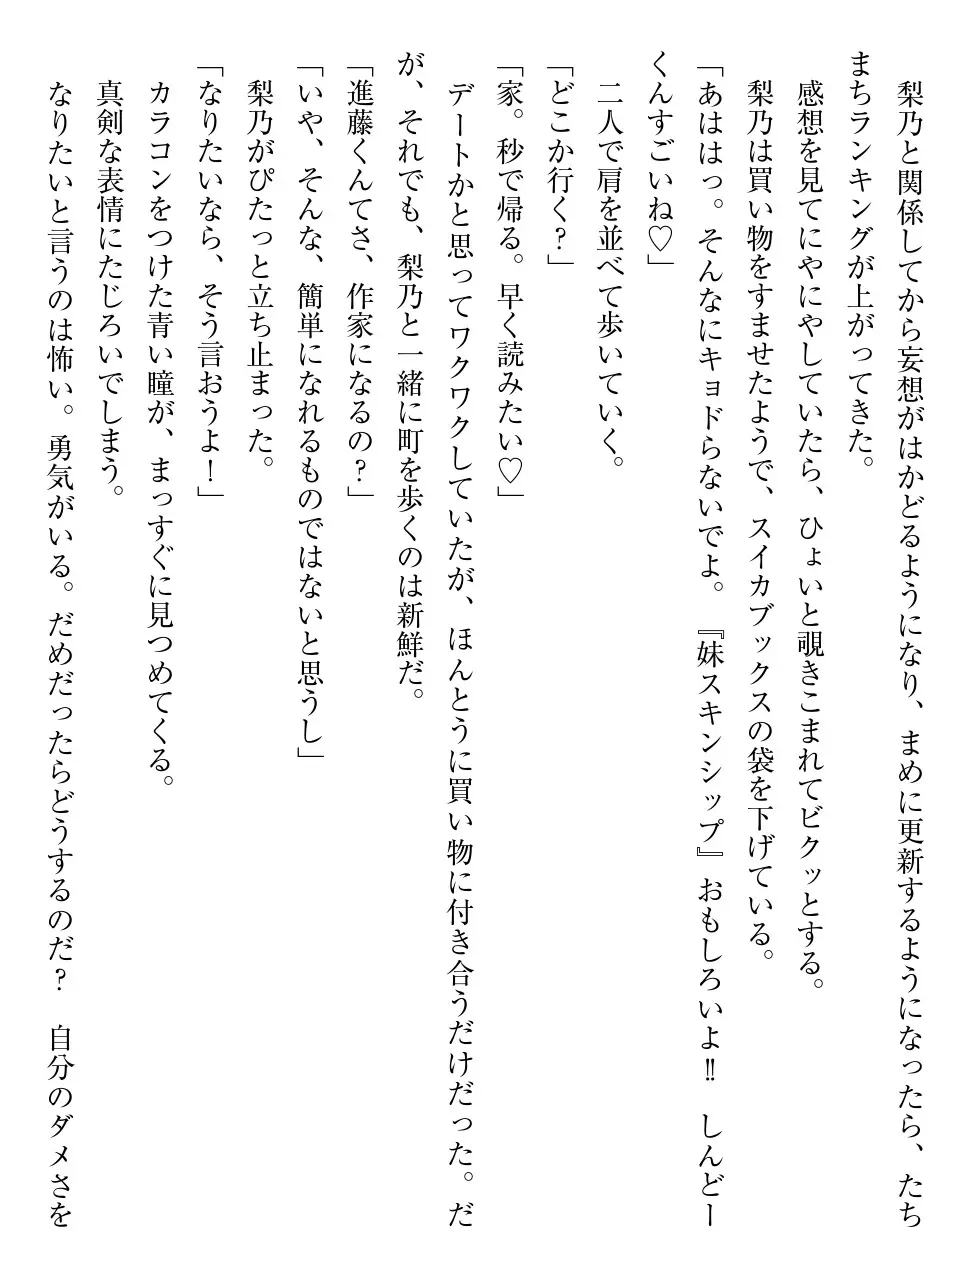 梨乃と関係してから妄想がはかどるようになり、まめに更新するようになったら、たち
まちランキングが上がってきた。
感想を見てにやにやしていたら、ひょいと覗きこまれてビクッとする。
梨乃は買い物をすませたようで、スイカブックスの袋を下げている。
「あははっ。そんなにキョドらないでよ。『妹スキンシップ』おもしろいよ‼　しんどー
くんすごいね♡」
二人で肩を並べて歩いていく。
「どこか行く?」
「家。秒で帰る。早く読みたい♡」
デートかと思ってワクワクしていたが、ほんとうに買い物に付き合うだけだった。だ
が、それでも、梨乃と一緒に町を歩くのは新鮮だ。
「進藤くんてさ、作家になるの?」
「いや、そんな、簡単になれるものではないと思うし」
梨乃がぴたっと立ち止まった。
「なりたいなら、そう言おうよ!」
カラコンをつけた青い瞳が、まっすぐに見つめてくる。
真剣な表情にたじろいでしまう。
なりたいと言うのは怖い。勇気がいる。だめだったらどうするのだ?　自分のダメさを